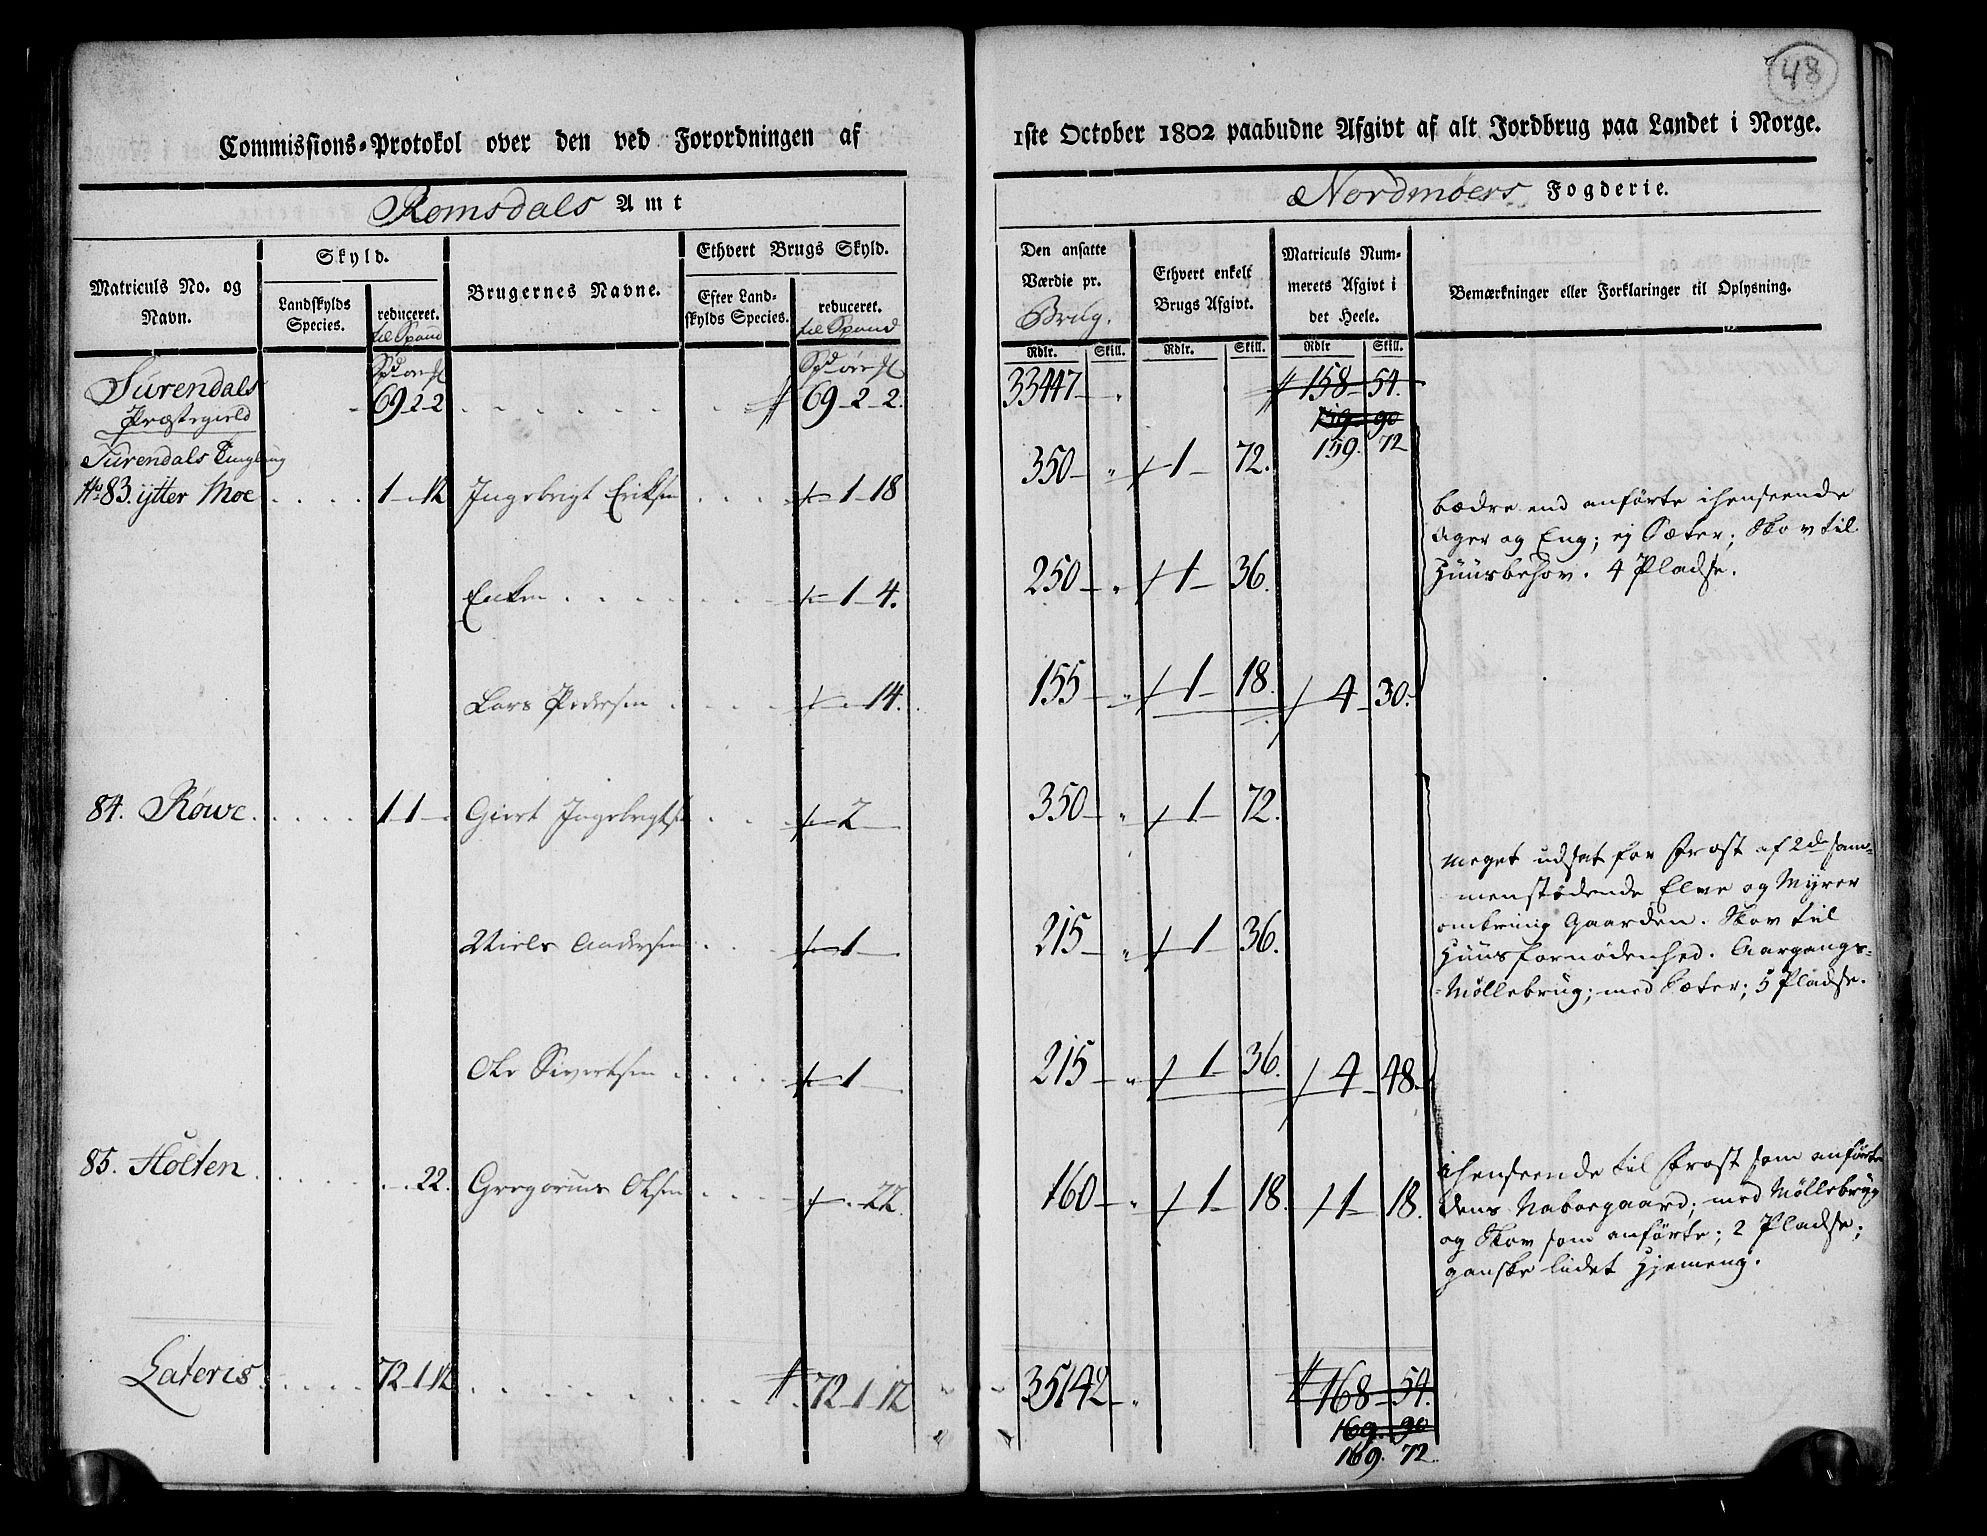 48
Commissions-Protokol over den ved Forordningen af
1ste October 1802 paabudne Afgivt af alt Jordbrug paa Landet i Norge.
Romsdals Amt
Nordmøers Fogderie.
Matriculs No. og Navn.
Skyld.
Landskylds Species.
reduceret.
til Spand
Brugernes Navne.
Ethvert Brugs Skyld.
Efter Landskylds Species.
reduceret.
til Spand
Den ansatte Værdie pr.
Brug.
Ethvert enkelt Brugs Afgivt.
Matriculs Nummerets Afgivt i det Heele.
Bemærkninger eller Forklaringer til Oplysning.
Rdlr. Skill. Rdlr. Skill. Rdlr Skill.
Surendals
Præstegield 69-2-2 69-2-2. 33447 158-54
159-90
159. 72
Surendals Tinglaug
No 83. ytter Moe 1-12 Ingebrigt Eriksen 1-18 350 1 72.
Enken 1-4. 250 1 36.
Lars Pedersen 14. 155 1 18. 4 30.
bædre end anførte ihenseende
Ager og Eng; ej Sæter; Skov til
Huusbehov. 4 Pladse.
84. Røwe 1 1 Giert Ingebrigts 2 350 1 72.
Niels Andersen 1 215 1 36.
Ole Sivertsen 1 215 1 36. 4 48.
meget udsat for Frost af 2de sam=
menstødende Elve og Myrer
omkring Gaarden. Skov til
Huusfornødenhed. Aargangs=
=Møllebrug; med Sæter; 5 Pladse.
85. Holten 22. Gregorius Olsen 22. 160 1 18. 1 18.
ihenseende til Frost som anførte
dens Naboegaard; med Møllebrug
og Skov som anførte; 2 Pladse;
ganske lidet Hjemeng.
Lateris 72-1-12 72-1-12 35142 168-54.
169-90
169. 72